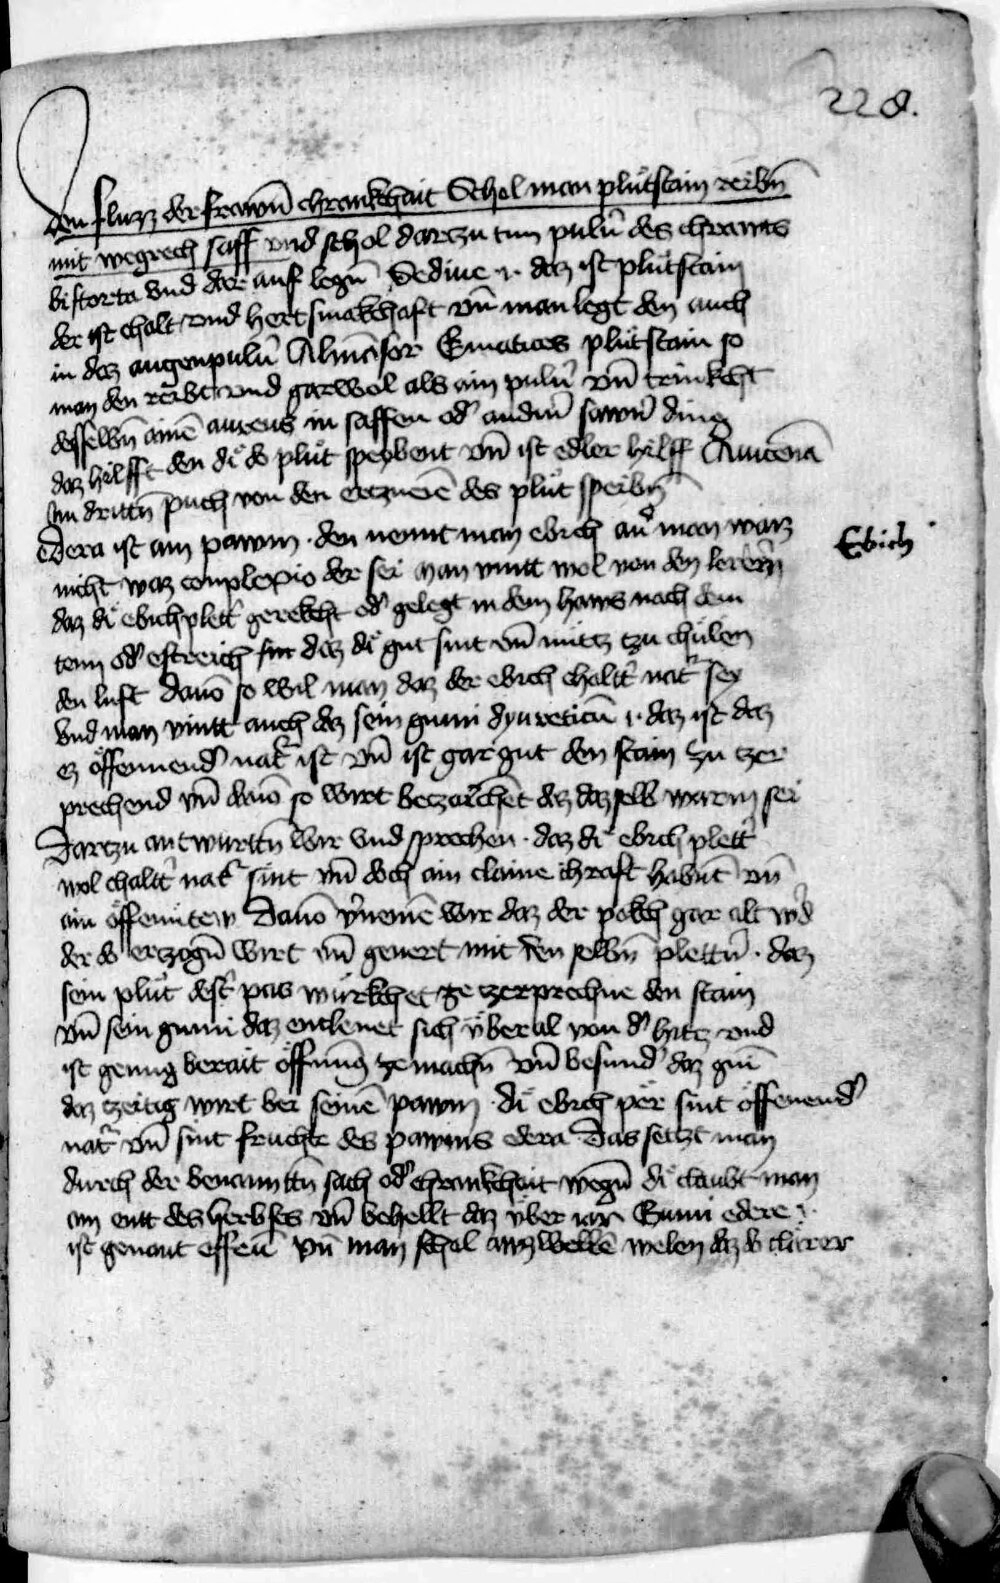 228.
den fluzz der frawn̄ chrankchait Schol man plůtstain reibn̄
mit wegrech saff vnd schol darczu tun pulu̇ des chrawts
bistorta vnd dar auf legn̄ Sedine .i. daz ist plůtstain
der ist chalt vnd hertsmakchaft vn̄ man legt den auch
in daz augenpulu̇ Almāsor Ematites plůtstain so
man den reibt vnd gar wol als ain pulu̇ vn̄ trinkcht
desselbn̄ ainē aureus in saffen od̾ andm̄ sawn̄ ding
daz hilfft den di do plůt speybent vn̄ ist edler hilff Auicēna
im drittn̄ puch von den ertzneiē des plůt speibn̄
Edera ist ain pawm . den nennt man ebich au̾ man waiz
nicht waz complexio der sei man vintt wol von den lerern̄
daz di ebichplett̾ gerekcht od̾ gelegt in dem haws nach dem
tenn od̾ estreich daz di gut sint vn̄ nuttz tzu chůlen
den luft dauō so wil man daz der ebich chaltt̾ nat̾ sey
vnd man vintt auch daz sein gumi dyureticū .i. daz ist daz
ez öffennend̾ nat̾ ist vn̄ ist gar gut den stain zu tzer
prechend vn̄ dauō so wirt betzaichēt daz dazselb warm sei
Dartzu antwurttn̄ wir vnd sprechen . daz di ebich plett̾
wol chaltt̾ nat̾ sint vn̄ doch ain claine chraft habnt̄ vn̄
ain öffenu̇ten Dauō v̾nemē wir daz der pokch gar alt w̾d
der do ertzogn̄ wirt vn̄ genert mit den selbn̄ plettn̄ . daz
sein plůt dest̾ pas würkchet ze tzerprechne den stain
vn̄ sein gumi daz entlenet sich v̈ber al von d̾ hitz vnd
ist genug berait öffnūg ze machn̄ vn̄ besund̾ daz gūi
daz tzeitig wirt bei seinē pawm . di ebich per sint öffenend̾
nat̾ vn̄ sint fruchte des pawms edera Das setzt man
durch der benanntn̄ sach od̾ chrankchait wegn̄ di claubt man
an entt des herbses vn̄ behellt daz v̈ber iar Gumi edere .i.
ist genant effeu̅ vn̄ man schol awzwellē welen daz do clarer
Ebich